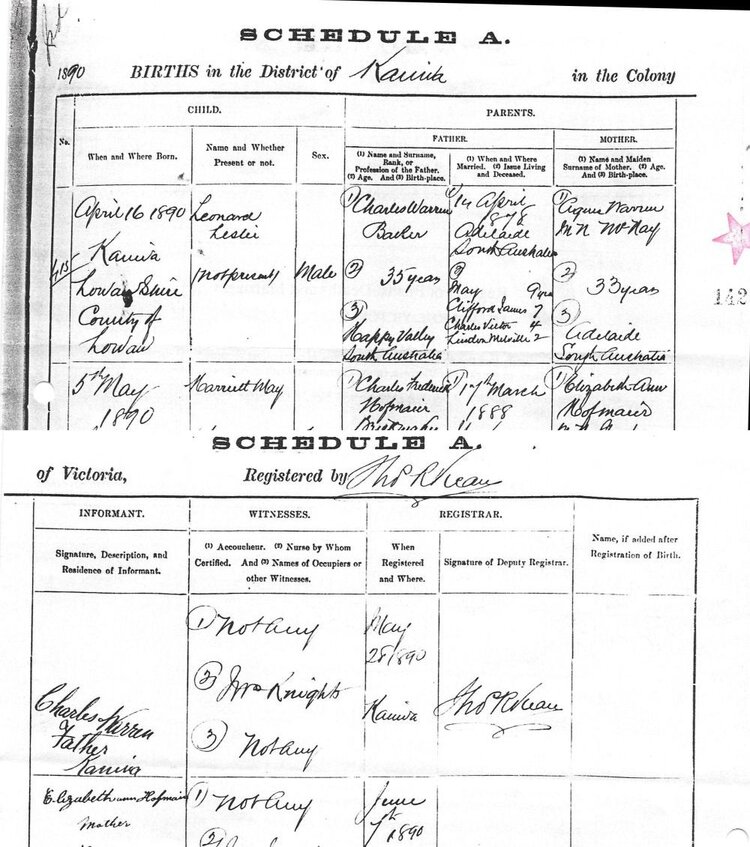 SCHEDULE A.
1890 BIRTHS in the District of Kaniva in the Colony
CHILD.
PARENTS.
No.
When and Where Born.
Name and Whether
Present or not.
Sex.
FATHER.
(1) Name and Surname,
Rank, or
Profession of the Father.
(2) Age. And (3) Birth-place.
(1) When and Where
Married. (2) Issue Living
and Deceased.
MOTHER.
(1) Name and Maiden
Surname of Mother. (2) Age.
And (3) Birth-place.
415
April 16 1890
Kaniva
Lowan Shire
County of
Lowan
Leonard
Leslie
(not present)
Male
(1) Charles Warren
Baker
(2) 35 years
(3)
Happy Valley
South Australia
(1) 14 April
1878
Adelaide
South Australia
(2)
May 9 yrs
Clifford James 7
Charles Victor 4
Lindon Melville 2
(1) Agnes Warren
M.N. McKay
(2)
33 years
(3)
Adelaide
South Australia
142
5th May
1890
Harriett May
(1) Charles Frederick
Hofmaier
(1) 17th March
1888
(1) Elizabeth Ann
Hofmaier
SCHEDULE A.
of Victoria, Registered by
INFORMANT.
WITNESSES.
REGISTRAR.
Signature, Description, and
Residence of Informant.
(1) Accoucheur. (2) Nurse by Whom
Certified. And (3) Names of Occupiers or
other Witnesses.
When
Registered
and Where.
Signature of Deputy Registrar.
Name, if added after
Registration of Birth.
Charles Warren
Father
Kaniva
(1) Not any
(2) Mrs Knights
(3) Not any
May
28 1890
Kaniva
Elizabeth ann Hofmaier
Mother
(1) Not any
(2)
June
7th
1890